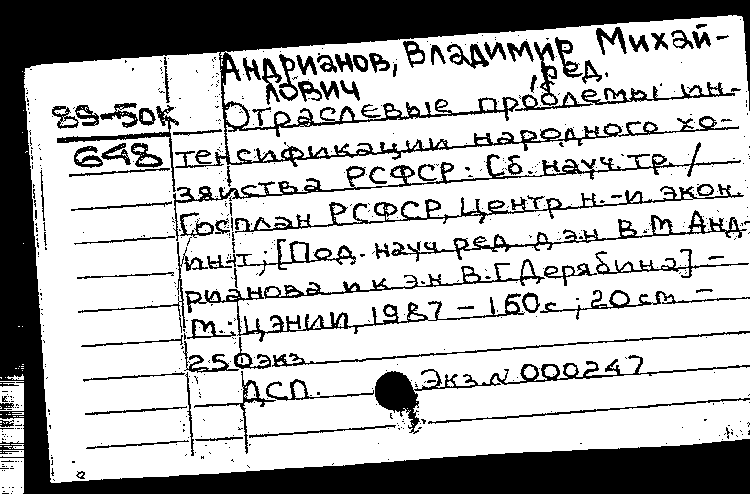 Андрианов, Владимир Михай-
лович, ред.
89-50к Отраслевые проблемы ин-
648 тенсификации народного хо-
зяйства РСФСР: [Сб. науч. тр. /
Госплан РСФСР, Центр. н.-и. экон.
ин-т; [Под. науч ред д.эн В.М Анд-
рианова и к э.н В.Г Дерябина] -
М.: ЦЭНИИ, 1987 - 150с; 20 cm. -
250экз.
ДСП. Экз. N 000247